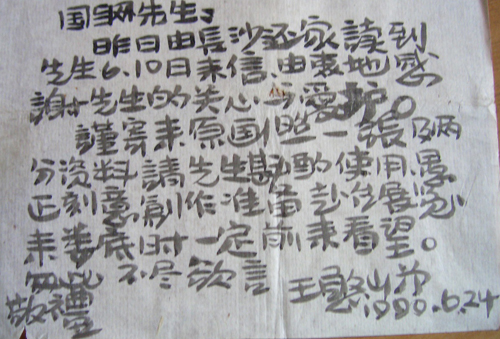 国钢先生：
昨日由長沙还家讀到
先生6.10日来信，由衷地感
謝先生的关心与爱护。
謹寄来原国照一張両
分资料請先生斟酌使用愚
正刻意創作准备赴佐展览
来娄底时一定前来看望。
不尽欲言
敬禮
王憨山
1990.6.24